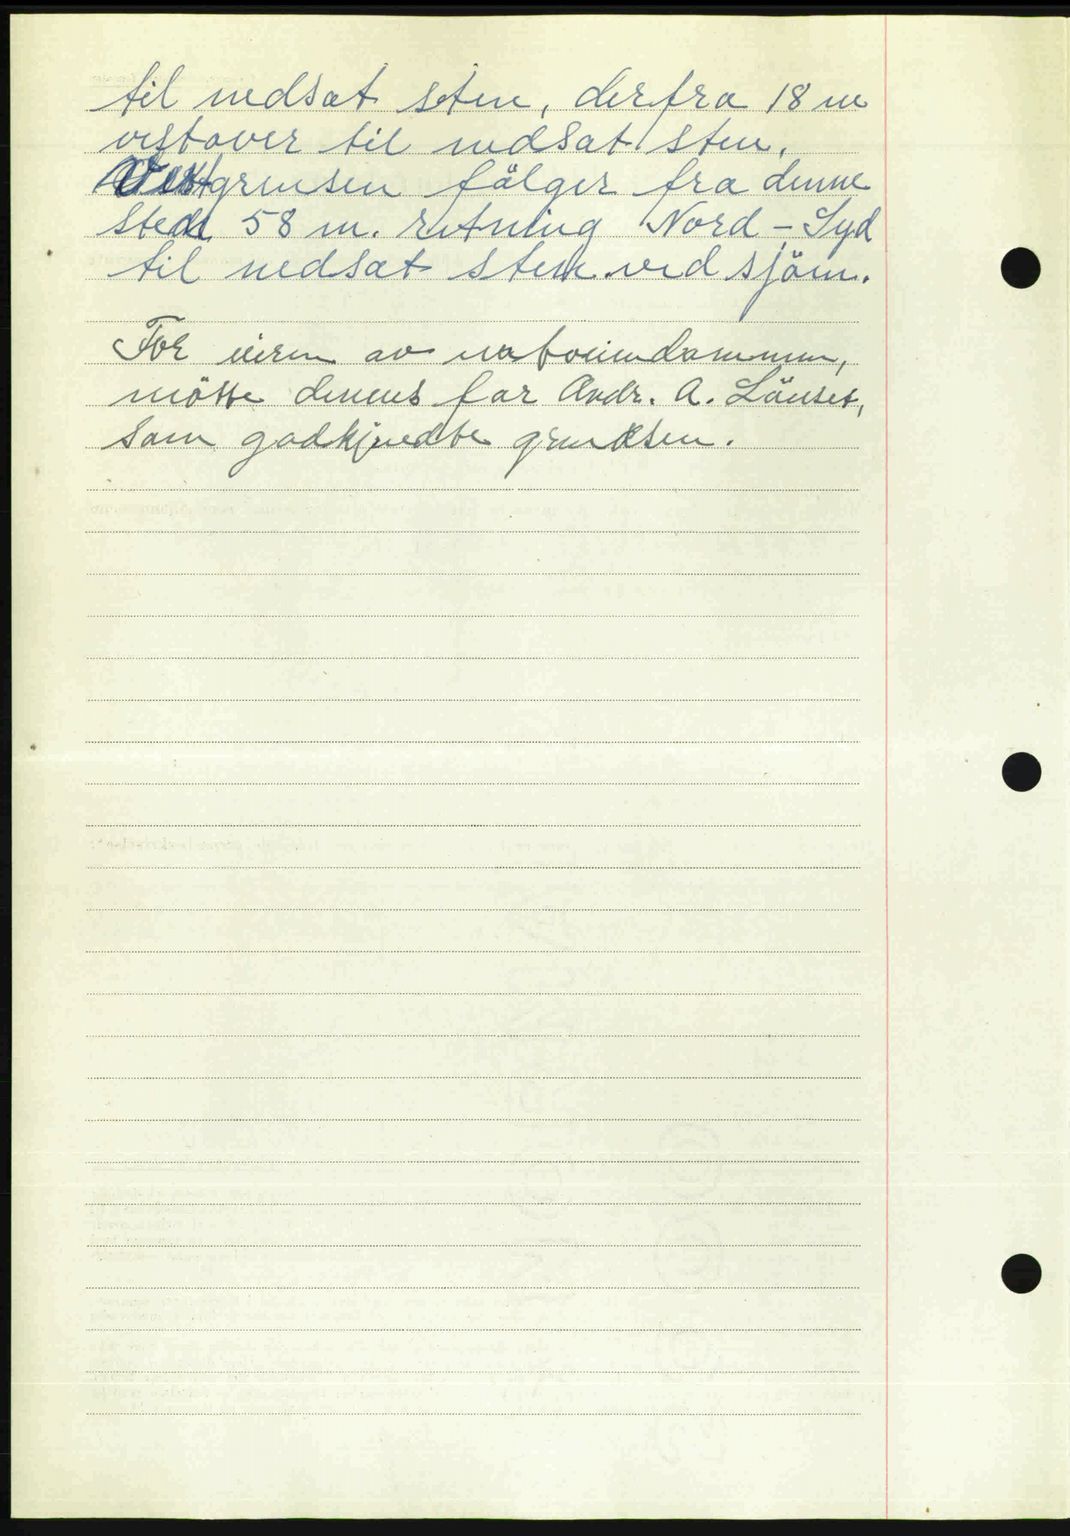 til nedsat sten, derfra 18 m
vestover til nedsat sten.
Vestgrensen fölger fra denne
sted 58 m. retning Nord - Syd
til nedsat sten ved sjöen.
For eieren av naboeiendommen,
mötte dennes far Andr. A. Länset,
som godkjendte grensen.